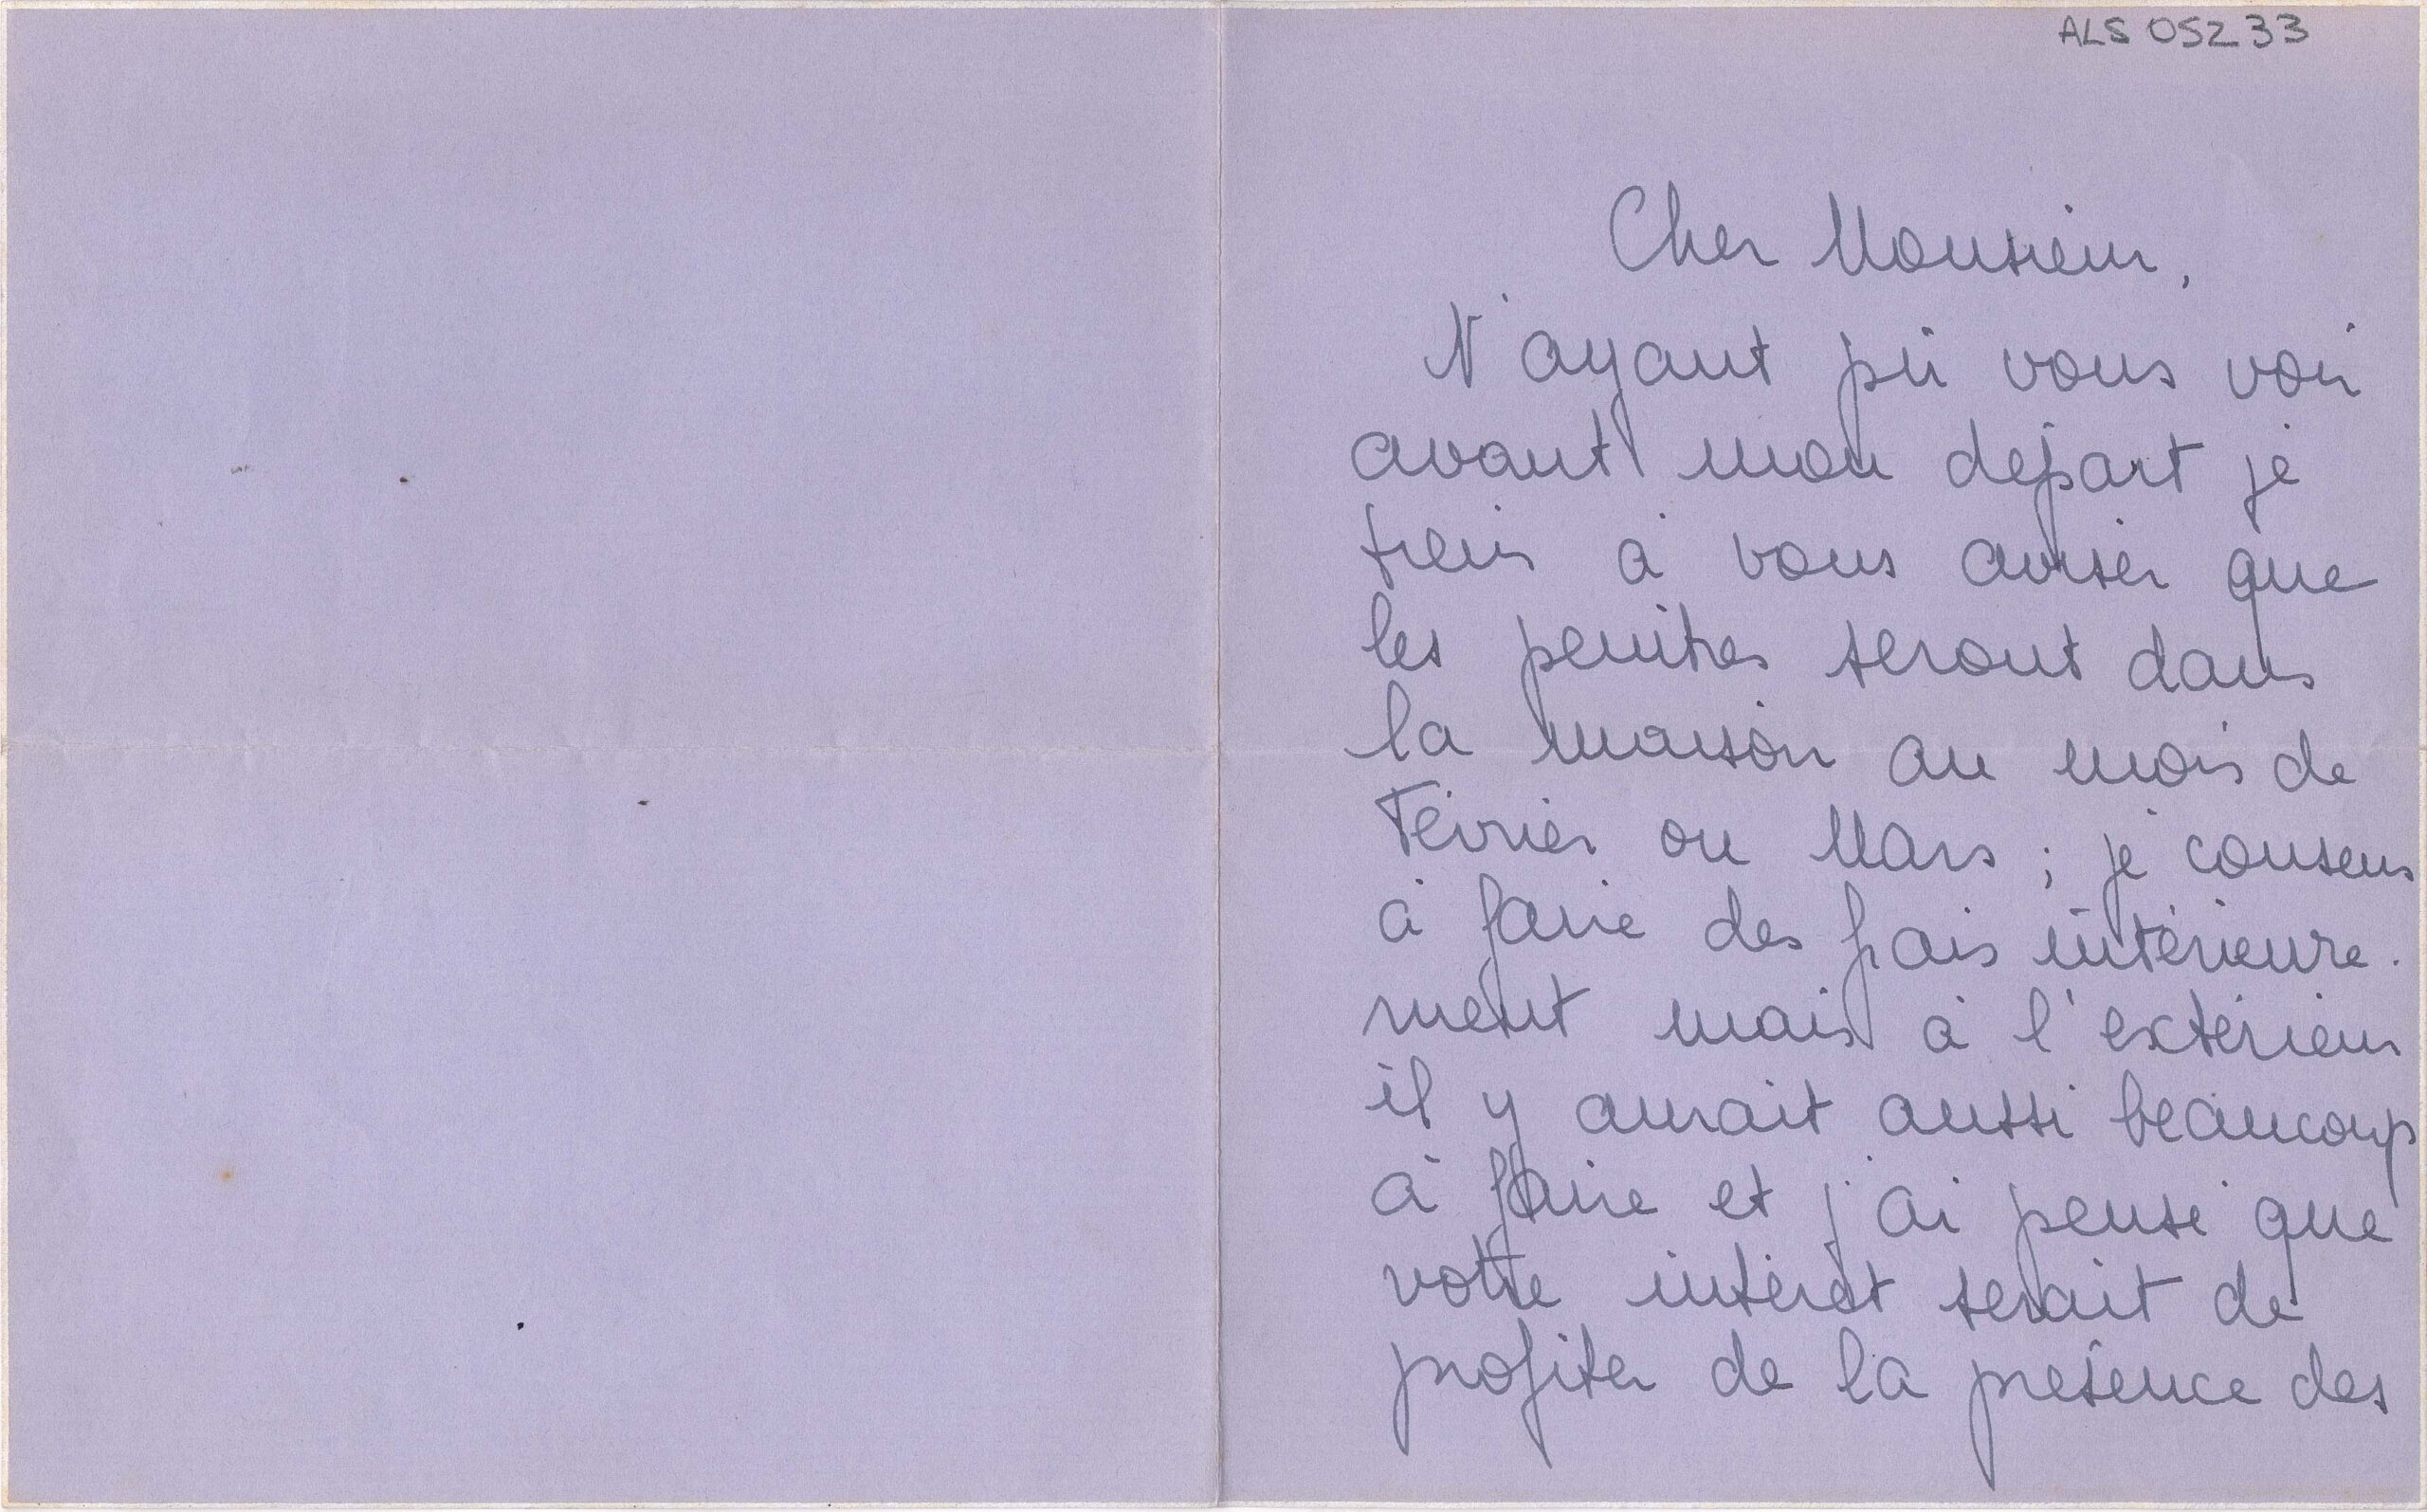 ALS 05233
Cher Monsieur,
N'ayant pû vous voir
avant mon départ je
tiens à vous aviser que
les peintres seront dans
la maison au mois de
Février ou Mars ; je consens
à faire des frais intérieure-
ment mais à l'extérieur
il y aurait aussi beaucoup
à faire et j'ai pensé que
votre intérêt serait de
profiter de la présence des